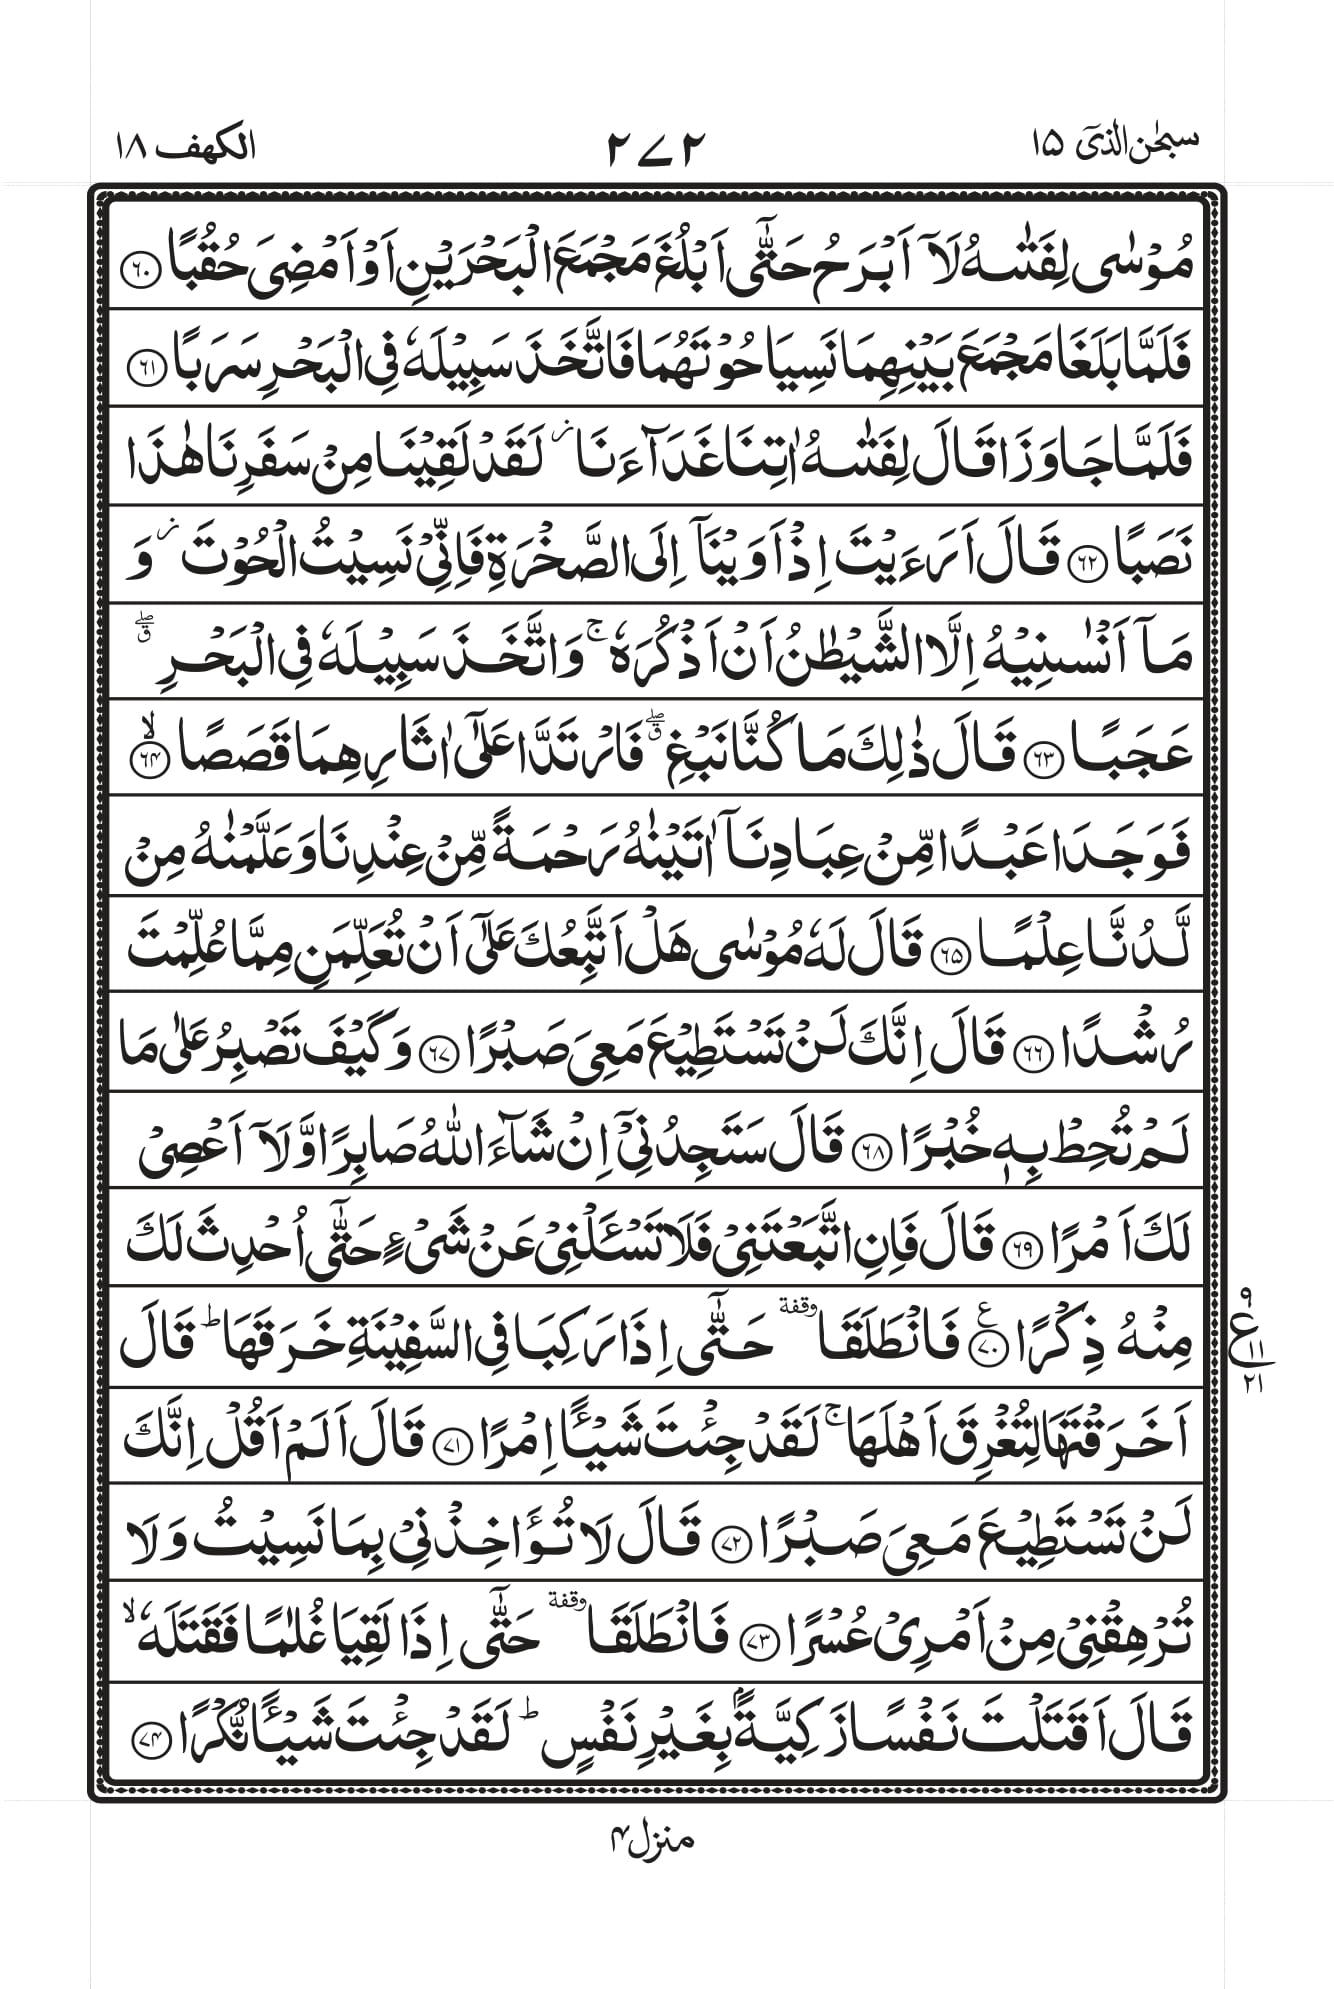 سبحٰن الذیٓ ۱۵
۲۷۲
الكهف ۱۸
مُوْسٰى لِفَتٰىهُ لَاۤ اَبْرَحُ حَتّٰۤى اَبْلُغَ مَجْمَعَ الْبَحْرَيْنِ اَوْ اَمْضِىَ حُقُبًا ۶۰
فَلَمَّا بَلَغَا مَجْمَعَ بَيْنِهِمَا نَسِيَا حُوْتَهُمَا فَاتَّخَذَ سَبِيْلَهٗ فِى الْبَحْرِ سَرَبًا ۶۱
فَلَمَّا جَاوَزَا قَالَ لِفَتٰىهُ اٰتِنَا غَدَآءَنَا ز لَقَدْ لَقِيْنَا مِنْ سَفَرِنَا هٰذَا
نَصَبًا ۶۲ قَالَ اَرَءَيْتَ اِذْ اَوَيْنَاۤ اِلَى الصَّخْرَةِ فَاِنِّىْ نَسِيْتُ الْحُوْتَ ز وَ
مَاۤ اَنْسٰىنِيْهُ اِلَّا الشَّيْطٰنُ اَنْ اَذْكُرَهٗ ۚ وَاتَّخَذَ سَبِيْلَهٗ فِى الْبَحْرِ ۖق
عَجَبًا ۶۳ قَالَ ذٰلِكَ مَا كُنَّا نَبْغِ ۖق فَارْتَدَّا عَلٰۤى اٰثَارِهِمَا قَصَصًا ۙ ۶۴
فَوَجَدَا عَبْدًا مِّنْ عِبَادِنَاۤ اٰتَيْنٰهُ رَحْمَةً مِّنْ عِنْدِنَا وَعَلَّمْنٰهُ مِنْ
لَّدُنَّا عِلْمًا ۶۵ قَالَ لَهٗ مُوْسٰى هَلْ اَتَّبِعُكَ عَلٰۤى اَنْ تُعَلِّمَنِ مِمَّا عُلِّمْتَ
رُشْدًا ۶۶ قَالَ اِنَّكَ لَنْ تَسْتَطِيْعَ مَعِىَ صَبْرًا ۶۷ وَكَيْفَ تَصْبِرُ عَلٰى مَا
لَمْ تُحِطْ بِهٖ خُبْرًا ۶۸ قَالَ سَتَجِدُنِىْۤ اِنْ شَآءَ اللّٰهُ صَابِرًا وَّلَاۤ اَعْصِىْ
لَكَ اَمْرًا ۶۹ قَالَ فَاِنِ اتَّبَعْتَنِىْ فَلَا تَسْـَٔلْنِىْ عَنْ شَىْءٍ حَتّٰۤى اُحْدِثَ لَكَ
مِنْهُ ذِكْرًا ۷۰ ع فَانْطَلَقَا وقفة حَتّٰۤى اِذَا رَكِبَا فِى السَّفِيْنَةِ خَرَقَهَا ؕ قَالَ
اَخَرَقْتَهَا لِتُغْرِقَ اَهْلَهَا ۚ لَقَدْ جِئْتَ شَيْـًٔا اِمْرًا ۷۱ قَالَ اَلَمْ اَقُلْ اِنَّكَ
لَنْ تَسْتَطِيْعَ مَعِىَ صَبْرًا ۷۲ قَالَ لَا تُؤَاخِذْنِىْ بِمَا نَسِيْتُ وَلَا
تُرْهِقْنِىْ مِنْ اَمْرِىْ عُسْرًا ۷۳ فَانْطَلَقَا وقفة حَتّٰۤى اِذَا لَقِيَا غُلٰمًا فَقَتَلَهٗ ۙ
قَالَ اَقَتَلْتَ نَفْسًا زَكِيَّةًۢ بِغَيْرِ نَفْسٍ ؕ لَقَدْ جِئْتَ شَيْـًٔا نُّكْرًا ۷۴
۹
ع
۱۱
۲۱
منزل ۴